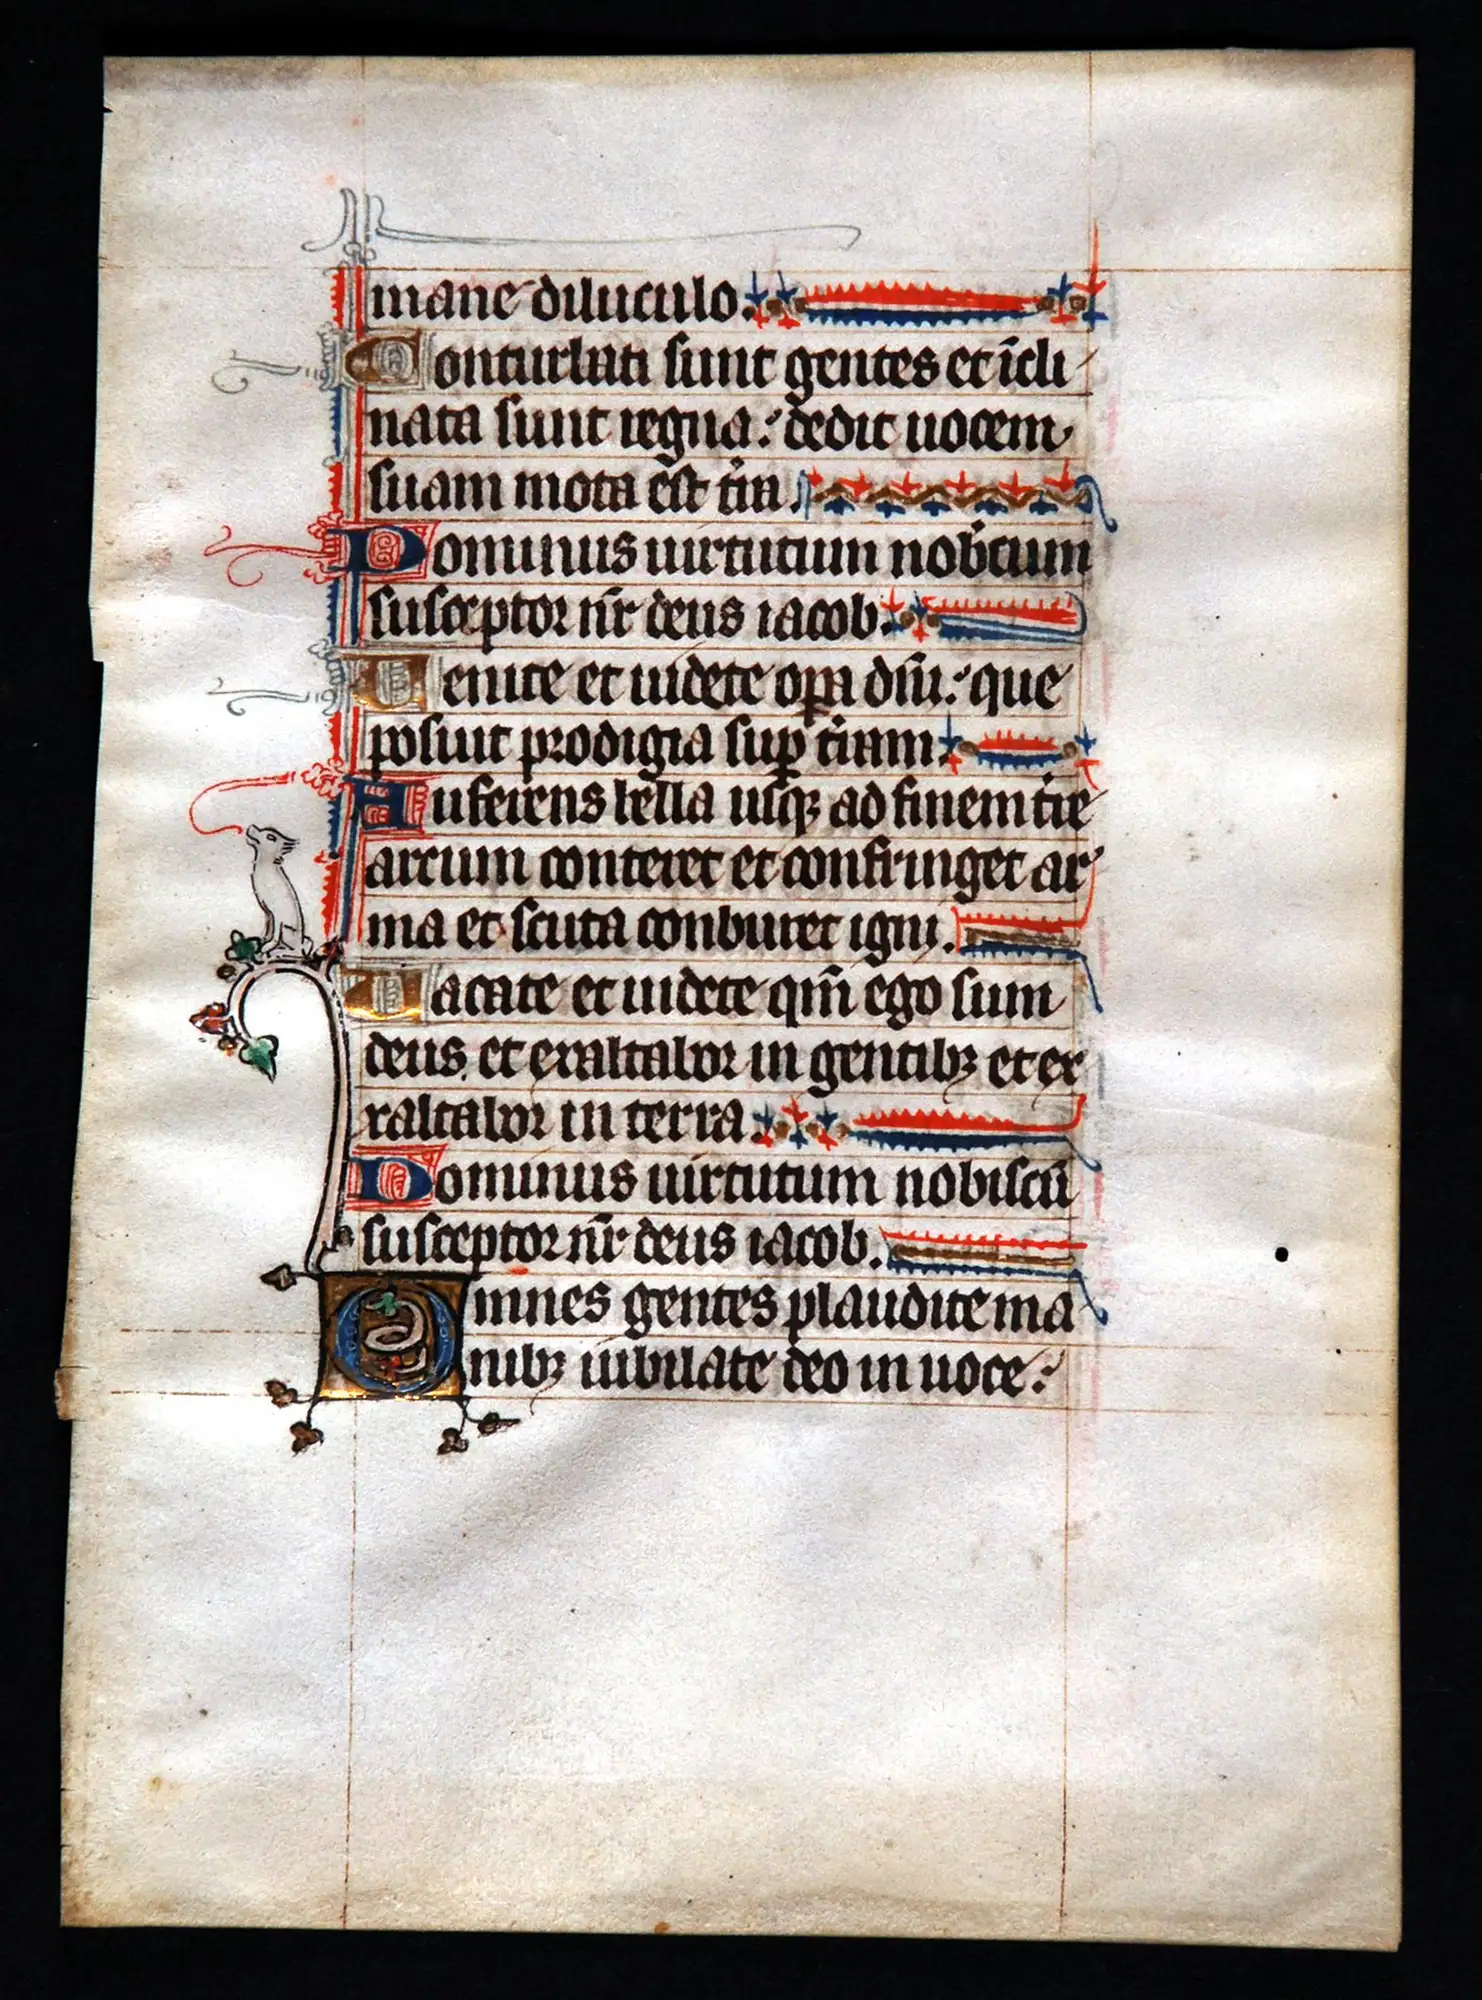 mane diluculo.
Conturbati sunt gentes et īcli
nata sunt regna: dedit uocem
suam mota est t̄ra.
Dominus uirtutum nobiscum
susceptor nr̄ deus iacob.
Uenite et uidete oꝑa dn̄i: que
posuit prodigia suꝑ t̄ram.
Auferens bella usqꝫ ad finem tr̄e
arcum conteret et confringet ar
ma et scuta conburet igni.
Uacate et uidete qm̄ ego sum
deus. et exaltabor in gentibꝫ et ex
xaltabor in terra.
Dominus uirtutum nobiscū
susceptor nr̄ deus iacob.
Omnes gentes plaudite ma
nibꝫ iubilate deo in uoce: